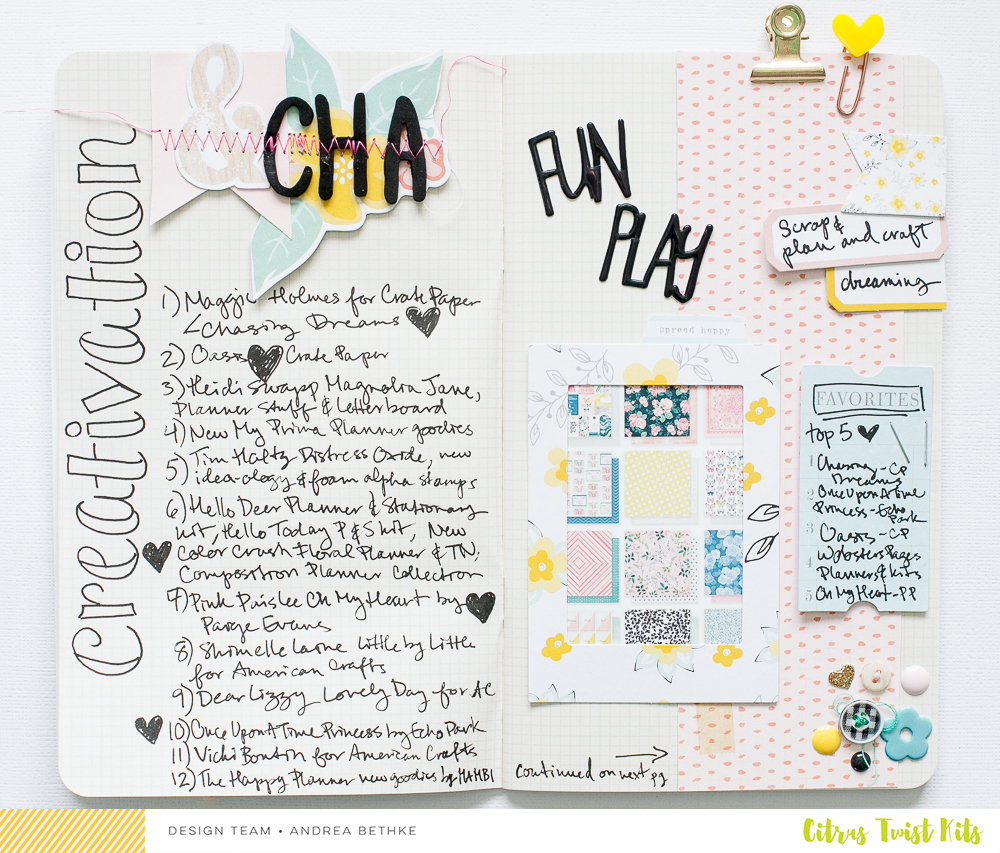 Creativation
&
CHA
1) Maggie Holmes for Crate Paper
Chasing Dreams
2) Oasis Crate Paper
3) Heidi Swapp Magnolia Jane,
Planner Stuff & Letterboard
4) New My Prima Planner goodies
5) Tim Holtz Distress Oxide, new
idea-ology & foam alpha stamps
6) Hello Deer Planner & Stationary
kit, Hello Today P & S kit, New
Color Crush Floral Planner & TN,
Composition Planner Collection
7) Pink Paislee Oh My Heart by
Paige Evans
8) Shimelle Laine Little by Little
for American Crafts
9) Dear Lizzy Lovely Day for AC
10) Once Upon A Time Princess by Echo Park
11) Vicki Boutin for American Crafts
12) The Happy Planner new goodies by MAMBI
FUN
PLAY
Scrap &
plan and craft
dreaming
spread happy
FAVORITES
top 5
1 Chasing - CP
Dreams
2 Once Upon A Time
Princess - Echo
Park
3 Oasis - CP
4 Websters Pages
Planners & kits
5 Oh My Heart - PP
Continued on next pg
DESIGN TEAM • ANDREA BETHKE
Citrus Twist Kits